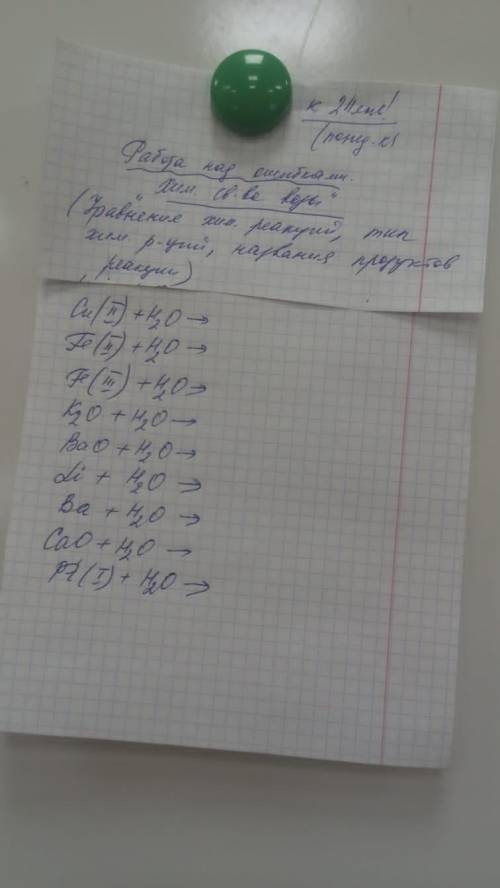 к 2
Работа над ошибками.
"Хим. св-ва воды"
(Уравнения хим. реакций, тип
хим. р-ций, названия продуктов
реакции)
Cu(II) + H₂O →
Fe(II) + H₂O →
Fe(III) + H₂O →
K₂O + H₂O →
BaO + H₂O →
Li + H₂O →
Ba + H₂O →
CaO + H₂O →
Pt(I) + H₂O →